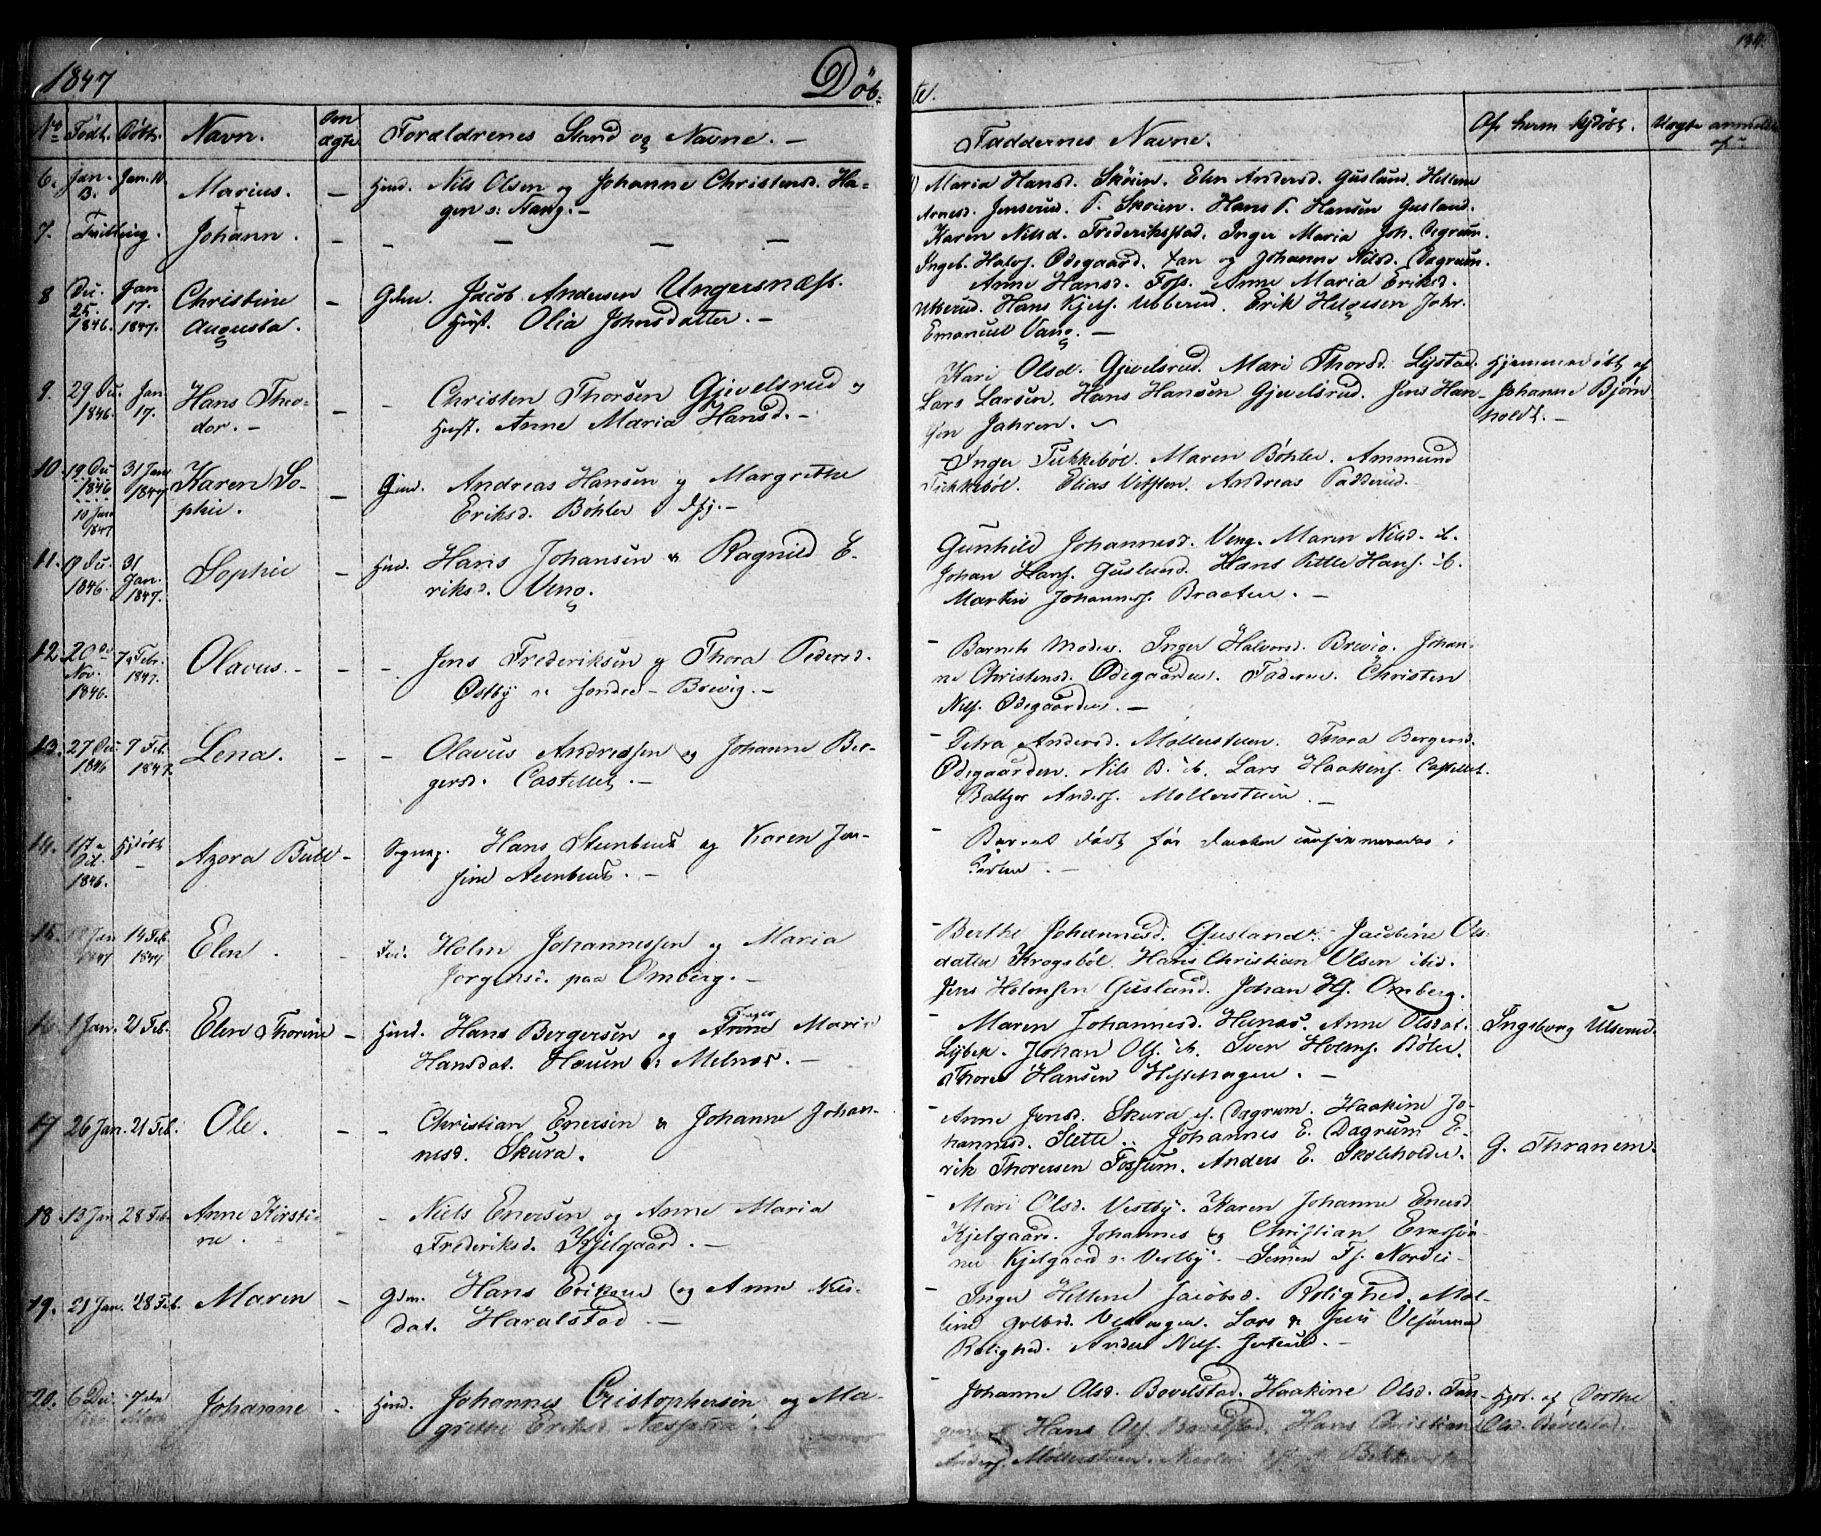 1847 Døb-
te. 134.
No Födt. Döbt. Navn. Om ægte Forældrenes Stand og Navne. —
Faddernes Navne. Af hvem hjdöbt. Uægte anmeldt af
6. Jan. 3. Jan. 10 Marius. — Huusd. Nils Olsen og Johanne Christensd. Ha-
gen v: Stang. —
Maria Hansd. Skøien. Elen Andersd. Gusland. Hellene
Arnesd. Jenserud. P. Skøien. Hans P. Hansen Gusland.
7. Tvilling. Johann. — — — — —
Karen Nilsd. Frederikstad. Inger Maria Joh. Dagrum.
Ingeb. Halvs. Ødegaard. Jan og Johannes Nilsd. Dagrum.
8 Dec. 25. 1846. Jan 17. 1847. Christine — Gdm. Jacob Andersen Ungersnæss.
Augusta. Hust. Olia Johnsdatter. —
Anne Hansd. Foss. Anne Maria Eriksd.
Ubberud. Hans Kjels. Ubberud. Erik Helgesen Johr.
Emanuel Vang. —
9. 29 Dec. 1846. Jan 17. Hans Theo- — - Christen Thorsen Gjevelsrud og
dor. — Hust. Anne Maria Hansd. —
Kari Olsd. Gjevelsrud. Mari Thorsd. Lystad. Hjemmedöbt af
Lars Larsen. Hans Hansen Gjevelsrud. Jens Han- Johanne Björn
sen Jahren. holdt. —
10. 19 Dec 1846 31 Jan 1847 Karen So- — Gm. Andreas Hansen og Margrethe
10 Jan 1847 phie. Eriksd. Bøhler
Inger Tikkebøl. Maren Bøhler. Ammund
Tikkebøl. Elias Vitsten. Andreas Padderud.
11. 9 Dec. 1846. 31 Jan. 1847. Sophie — Huusd. Hans Johansen & Ragnild E-
riksd. Veng.
Gunhild Johannesd. Veng. Maren Nilsd. ib.
Johan Hans. Gusland. Hans Pitter Hans. ib.
Martin Johanness. Braaten. —
12. 20de Nov. 1846. 7 Febr. 1847. Olavus. — - Jens Frederiksen og Thora Pedersd.
Østby v: søndre Brevig. —
— Barnets Moder. Inger Halvorsd. Brevig. Johan-
ne Christensd. Ødegaarden. Faderen. Christen
Nils. Ødegaarden. —
13. 27 Dec 1846 7 Feb. 1847. Lena. — - Olavus Andreassen og Johanne Ber-
gersd. Castellet. —
— Petra Andersd. Møllerstuen. Thora Bergersd.
Ødegaarden. Nils B. ib. Lars Haakens. Castellet.
Baltzer Anders. Møllerstuen. —
14. 17de Oct. 1846. Hjdöbt — Azora Bull — Hans Steenbuch og Karen Jo-
sine Steenbuch. —
— Barnet død før Daaben confirmeredes i
Kirken. —
15. 17 Jan 1847 14 Feb. 1847 Elen. — Holm Johannessen og Maria
Jørgensd. paa Omberg. —
— Berthe Johannesd. Gusland. Jacobine Ols-
datter Krogsbøl. Hans Christian Olsen ibid.
Jens Holmsen Gusland. Johan H. Omberg.
16. 1 Jan. 21 Feb. Elen Thorine — Huusd. Hans Bergersen og Inger Anne Marie
Hansdat. Houen v: Melnæs. —
— Maren Johannesd. Hunæs. Anne Olsdat. Ingeborg Ulserud.
Lybek. Johan Ols. ib. Sven Holms. Bøler.
Thore Hansen Hestehagen. —
17 26 Jan. 21 Feb. Ole. — - Christian Enersen & Johanne Johan-
nesd. Skura.
— Anne Jensd. Skura v. Dagrum. Haakine Jo-
hannesd. Slette. Johannes E. Dagrum E- G. Thranem.
rik Thoresen Fossum. Anders E. Skoleholder.
18 13 Jan 28 Feb. Anne Kirsti- — - Niels Enersen og Anne Maria
ne. Frederiksd. Kjelgaard. —
— Mari Olsd. Vestby. Karen Johanne Enersd.
Kjelgaard. Johannes og Christian Enersøn-
ner Kjelgaard v: Vestby. Simen Ts. Nordli —
19. 21 Jan. 28 Feb. Maren — Gdm. Hans Eriksen og Anne Nils-
dat. Haralstad. —
— Inger Hellene Jacobsd. Rolighed. Mal-
Lars & Jens Olsønner
Rolighed. Anders Nils. Jerterud. —
20. 6 Dec. 7de Marts Johanne — Huusd. Johannes Cristophersen og Ma-
grethe Eriksd. Næspetra.
— Johanne Olsd. Bovelstad. Haakine Olsd. Tan- Hjdb. af Dorthe
Hans Ols. Bovelstad. Hans Christian Olsd. Bovelstad.
Anders. Møllerstuen.